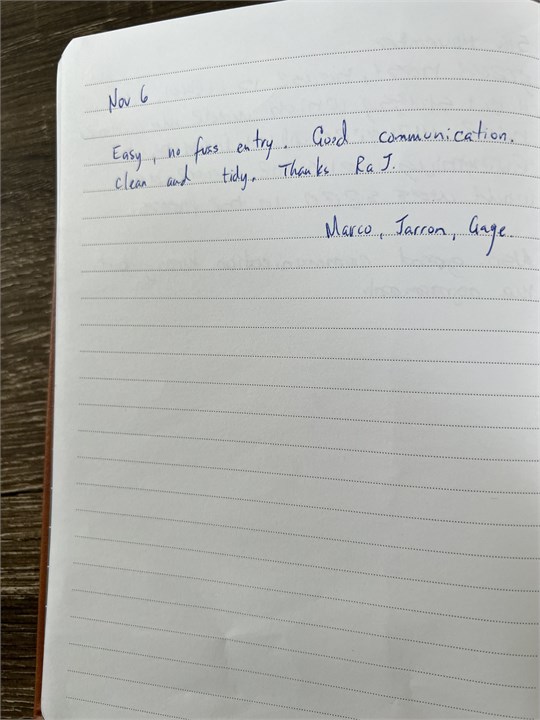 Nov 6
Easy, no fuss entry. Good communication.
Clean and tidy. Thanks Ra J.
Marco, Jarron, Gage.